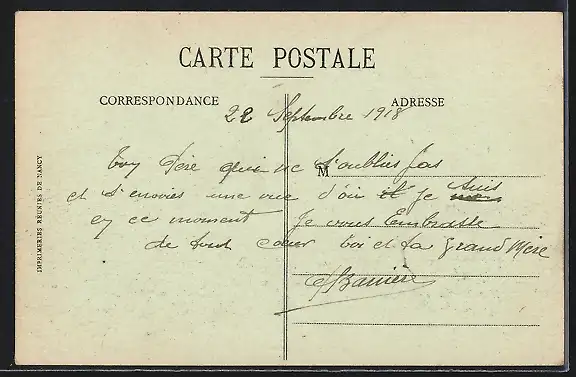 CARTE POSTALE
CORRESPONDANCE
ADRESSE
22 Septembre 1918
M
Ton Père qui ne t'oublies pas
et t'envoies une vue d'où il je suis
en ce moment Je vous Embrasse
de tout cœur toi et ta Grand Mère
Barrière
IMPRIMERIES REUNIES DE NANCY